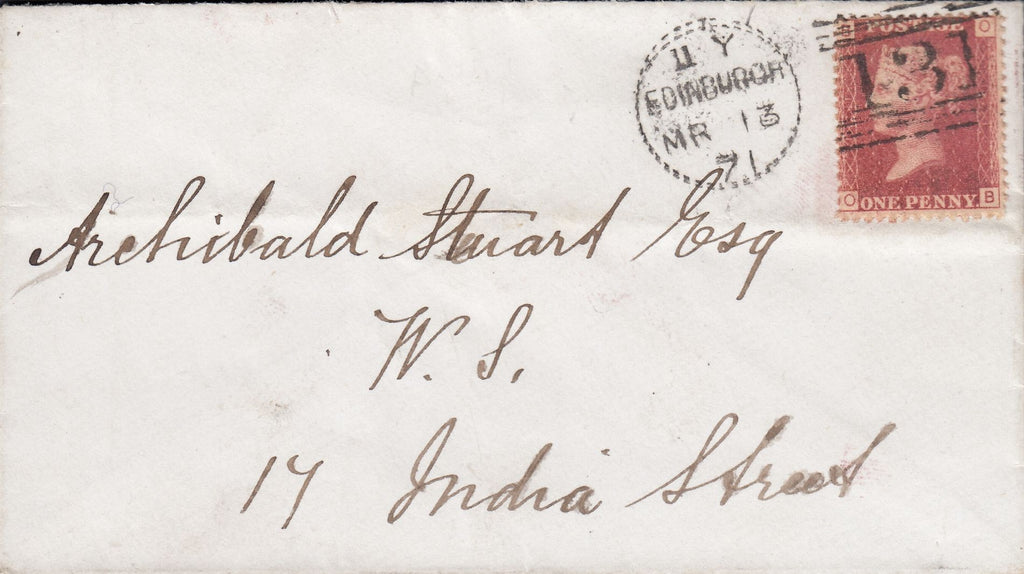 11 Y
EDINBURGH
MR 13
71
B O
POSTAGE
131
O ONE PENNY B
Archibald Stuart Esq
W. S.
17 India Street